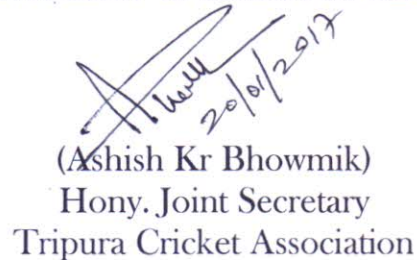 20/01/2017
(Ashish Kr Bhowmik)
Hony. Joint Secretary
Tripura Cricket Association